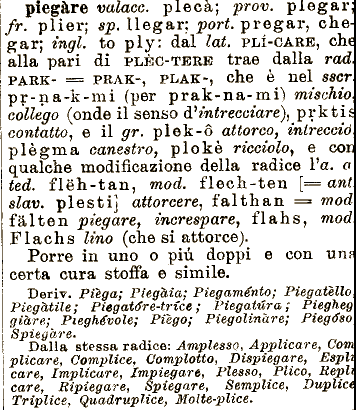 piegàre valacc. plecà; prov. plegar;
fr. plier; sp. llegar; port. pregar, che-
gar; ingl. to ply: dal lat. PLI-CARE, che
alla pari di PLÈC-TERE trae dalla rad.
PARK- = PRAK-, PLAK-, che è nel sscr.
pṛ-ṇa-k-mi (per prak-na-mi) mischio,
collego (onde il senso d'intrecciare), pṛktis
contatto, e il gr. plek-ô attorco, intreccio,
plègma canestro, plokè ricciolo, e con
qualche modificazione della radice l'a. a
ted. flëh-tan, mod. flech-ten [= ant.
slav. plesti] attorcere, falthan = mod.
fälten piegare, increspare, flahs, mod.
Flachs lino (che si attorce).
Porre in uno o più doppi e con una
certa cura stoffa e simile.
Deriv. Pièga; Piegàia; Piegaménto; Piegatèllo,
Piegàtile; Piegatóre-tríce; Piegatúra; Piegheg-
giàre; Pieghévole; Piègo; Piegolinàre; Piegóso
Spiegàre.
Dalla stessa radice: Amplesso, Applicare, Com-
plicare, Complice, Complotto, Dispiegare, Espli-
care, Implicare, Impiegare, Plesso, Plico, Repli-
care, Ripiegare, Spiegare, Semplice, Duplice
Triplice, Quadruplice, Molte-plice.